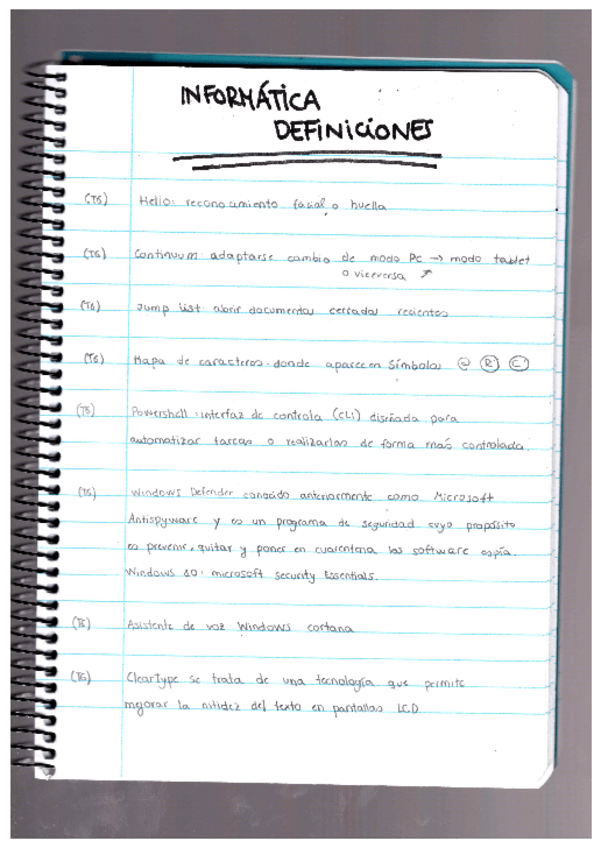 INFORMÁTICA
DEFINICIONES
(T6) Hello: reconocimiento facial o huella
(T6) Continuum: adaptarse cambio de modo PC → modo tablet
o viceversa ↗
(T6) Jump list: abrir documentos cerrados recientos
(T6) Mapa de caracteres: donde aparecen símbolos @ ® ©
(T6) Powershell: interfaz de controla (CLI) diseñada para
automatizar tareas o realizarlas de forma más controlada.
(T6) Windows Defender conocido anteriormente como Microsoft
Antispyware y es un programa de seguridad cuyo propósito
es prevenir, quitar y poner en cuarentena los software espía.
Windows 10: microsoft security Essentials.
(T6) Asistente de voz Windows cortana
(T6) ClearType se trata de una tecnología que permite
mejorar la nitidez del texto en pantallas LCD